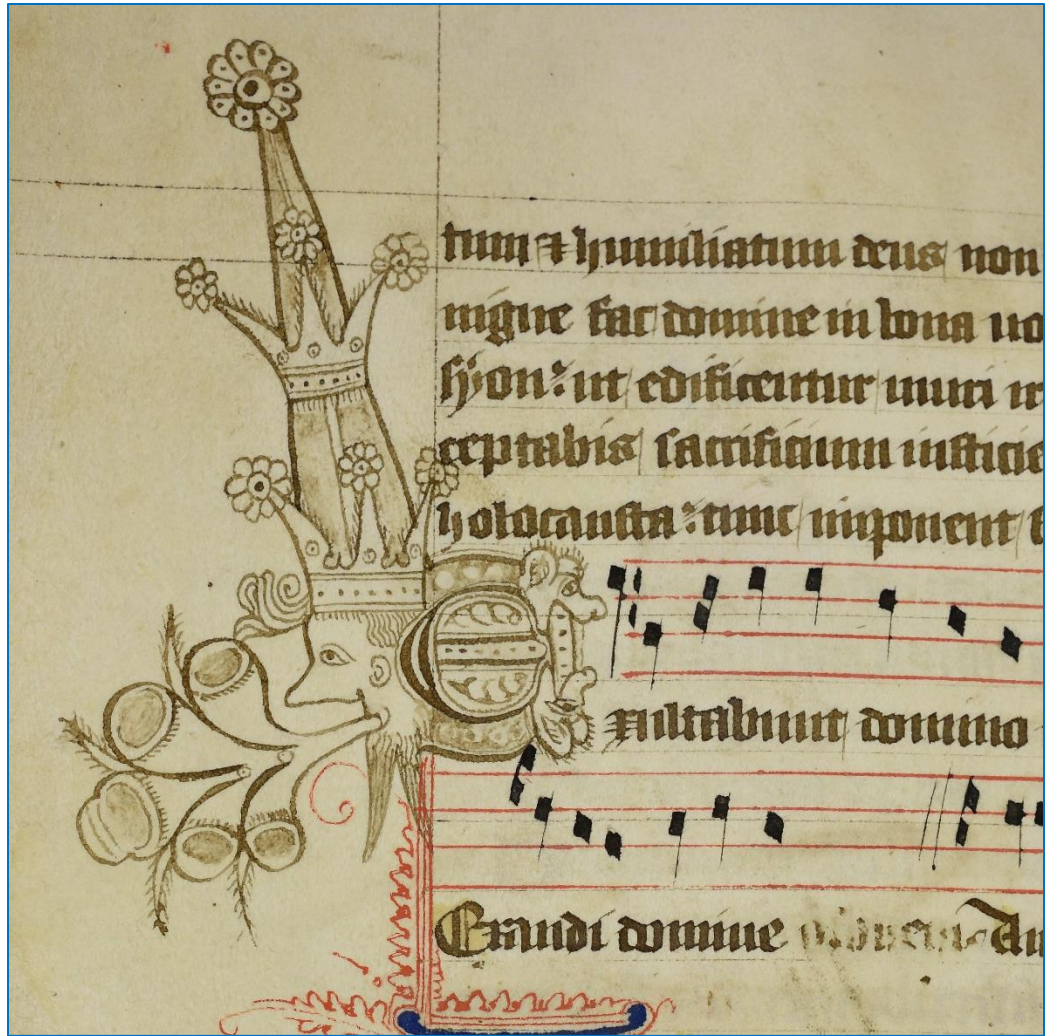 tum ⁊ humiliatum deus non
nigne fac domine in bona uo
syon: ut edificentur muri ie
ceptabis sacrificium iusticie
holocausta: tunc imponent
Exultabunt domino
Exaudi domine An